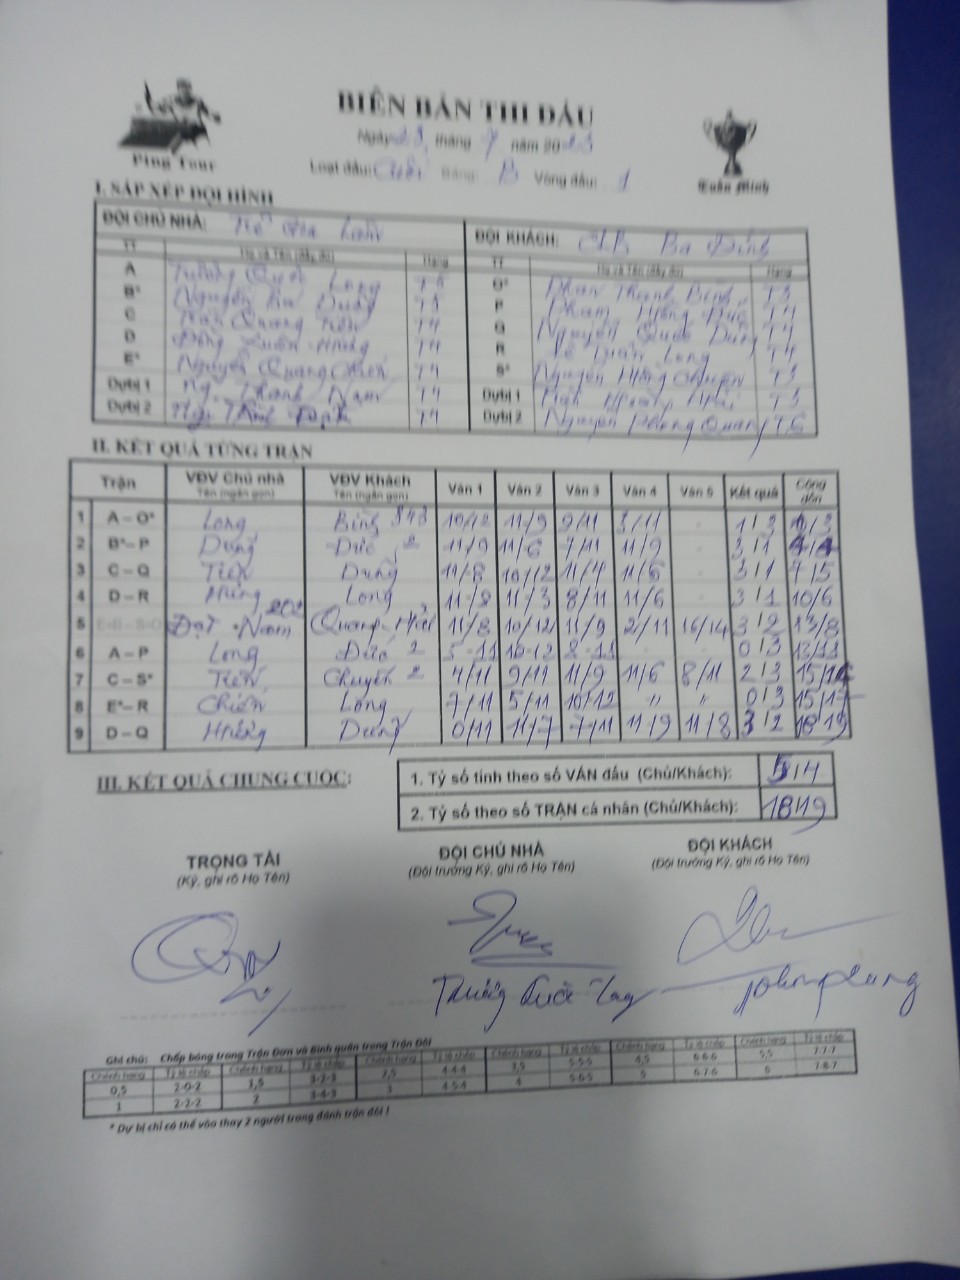 Ping Tour
BIÊN BẢN THI ĐẤU
Ngày 23 tháng 7 năm 20
Loạt đấu: Bảng: B Vòng đấu: 1
Tuấn Minh
I. SẮP XẾP ĐỘI HÌNH
ĐỘI CHỦ NHÀ: ĐỘI KHÁCH: CLB Ba Đình
TT Họ và Tên (đầy đủ) Hạng TT Họ và Tên (đầy đủ) Hạng
A Trương Quốc Long T5 O* Phan Thanh Bình T3
B* Nguyễn Dung T5 P Phạm Hồng Đức T4
C Trần Quang Tiến T4 Q Nguyễn Quốc Dũng T4
D Đặng Xuân Hưng T4 R Tuấn Long T4
E* Nguyễn Quang Chiến T4 S* Nguyễn Hồng Chuyên T3
Dự bị 1 Ng. Thanh Nam T4 Dự bị 1 Hải T3
Dự bị 2 T4 Dự bị 2 Nguyễn Quang
II. KẾT QUẢ TỪNG TRẬN
Trận VĐV Chủ nhà Tên (ngắn gọn) VĐV Khách Tên (ngắn gọn) Ván 1 Ván 2 Ván 3 Ván 4 Ván 5 Kết quả Cộng dồn
1 A – O* Long Bình 343 10/12 11/9 9/11 3/11 1/3 1/3
2 B* – P Dung Đức 2 11/9 11/6 7/11 11/9 3/1 4/4
3 C – Q Tiến Dung 11/8 10/12 11/4 11/6 3/1 7/5
4 D – R Hưng Long 11/8 11/3 8/11 11/6 3/1 10/6
5 Đạt - Nam 202 Quang - Hải 11/8 10/12 11/9 2/11 16/14 3/2 13/8
6 A – P Long Đức 2 5-11 10-12 8-11 0/3 13/11
7 C – S* Tiến Chuyên 2 4/11 9/11 11/9 11/6 8/11 2/3 15/14
8 E* – R Chiến Long 7/11 5/11 10/12 " " 0/3 15/17
9 D – Q Hưng Dung 0/11 11/7 7/11 11/9 11/8 3/2 18/19
III. KẾT QUẢ CHUNG CUỘC:
1. Tỷ số tính theo số VÁN đấu (Chủ/Khách): 5/4
2. Tỷ số theo số TRẬN cá nhân (Chủ/Khách): 18/19
TRỌNG TÀI ĐỘI CHỦ NHÀ ĐỘI KHÁCH
(Ký, ghi rõ Họ Tên) (Đội trưởng Ký, ghi rõ Họ Tên) (Đội trưởng Ký, ghi rõ Họ Tên)
Trương Quốc Long
Ghi chú: Chấp bóng trong Trận Đơn và Bình quân trong Trận Đôi
Chênh hạng Tỷ lệ chấp Chênh hạng Tỷ lệ chấp Chênh hạng Tỷ lệ chấp Chênh hạng Tỷ lệ chấp Chênh hạng Tỷ lệ chấp Chênh hạng Tỷ lệ chấp
0,5 2-0-2 1,5 3-2-3 2,5 4-4-4 3,5 5-5-5 4,5 6-6-6 5,5 7-7-7
1 2-2-2 2 3-4-3 3 4-5-4 4 5-6-5 5 6-7-6 6 7-8-7
* Dự bị chỉ có thể vào thay 2 người trong đánh trận đôi !